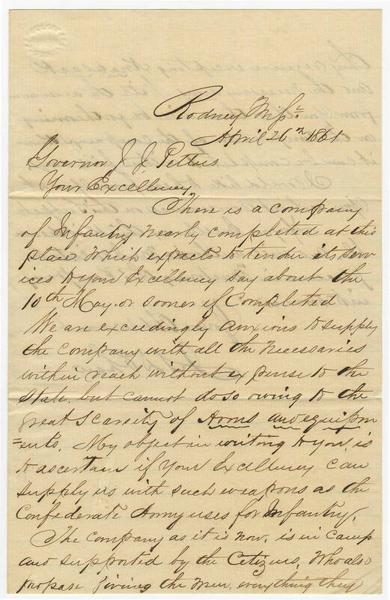 Rodney Miss.
April 26th 1861
Governor J. J. Pettus
Your Excellency,
There is a company
of Infantry nearly completed at this
place which expects to tender its serv
ices to your Excellency say about the
10th May. or sooner if Completed
We are exceedingly anxious to supply
the company with all the necessaries
within reach without expense to the
State, but cannot do so owing to the
great scarcity of Arms and equipm
=ents. My object in writing to you is
to ascertain if your Excellency can
supply us with such weapons as the
Confederate Army uses for Infantry.
The company as it is now, is in camp
and supported by the Citizens, Who also
propose giving the men, everything they